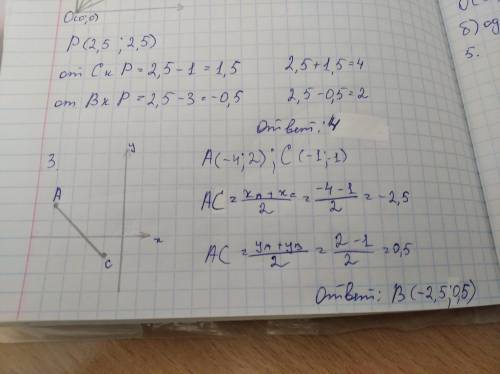 O(0;0)
P(2,5 ; 2,5)
от C к P = 2,5 - 1 = 1,5    2,5 + 1,5 = 4
от B к P = 2,5 - 3 = -0,5    2,5 - 0,5 = 2
Ответ: 4
3.
y
A
x
C
A(-4; 2) ; C (-1; -1)
AC = (xA + xC)/2 = (-4 - 1)/2 = -2,5
AC = (yA + yB)/2 = (2 - 1)/2 = 0,5
Ответ: B (-2,5; 0,5)
б)
5.